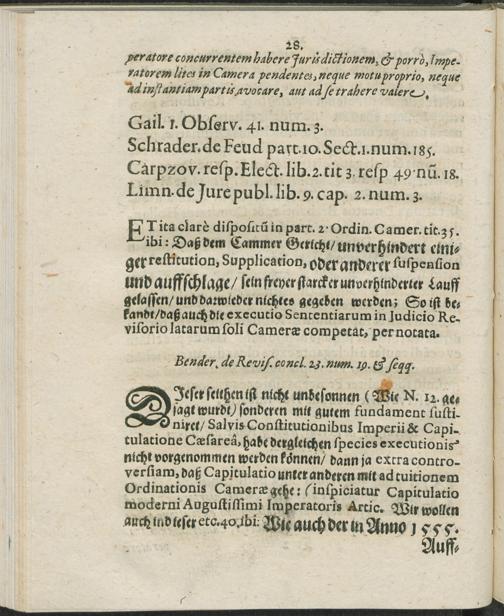 28.
peratore concurrentem habere Jurisdictionem, & porrò, Impe-
ratorem lites in Camera pendentes, neque motu proprio, neque
ad instantiam partis avocare, aut ad se trahere valere.
Gail. 1. Observ. 41. num. 3.
Schrader. de Feud part. 10. Sect. 1. num. 185.
Carpzov. resp. Elect. lib. 2. tit 3. resp 49 nū. 18.
Limn. de Jure publ. lib. 9. cap. 2. num. 3.
ET ita clarè dispositū in part. 2. Ordin. Camer. tit. 35.
ibi: Daß dem Cammer Gericht/ unverhindert eini-
ger restitution, Supplication, oder anderer suspension
und auffschlage/ sein freyer starcker unverhinderter Lauff
gelassen/ und darwieder nichtes gegeben werden; So ist be-
kandt/ daß auch die executio Sententiarum in Judicio Re-
visorio latarum soli Cameræ competat, per notata.
Bender. de Revis. concl. 23. num. 19. & seqq.
Dieser seithen ist nicht unbesonnen (Wie N. 12. ge-
jagt wurdt) sonderen mit gutem fundament susti-
niret/ Salvis Constitutionibus Imperii & Capi-
tulatione Cæsareâ, habe dergleichen species executionis
nicht vorgenommen werden können/ dann ja extra contro-
versiam, daß Capitulatio unter anderen mit ad tuitionem
Ordinationis Cameræ gehe: (inspiciatur Capitulatio
moderni Augustissimi Imperatoris Artic. Wir wollen
auch in dieser etc. 40. ibi: Wie auch der in Anno 1555.
Auff-